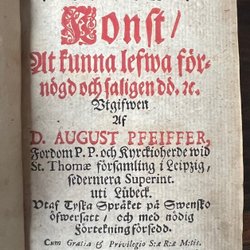 Konst/
At kunna lefwa för-
nögd och saligen dö. ꝛc.
Vtgifwen
Af
D. AUGUST PFEIFFER,
Fordom P. P. och Kyrckioherde wid
St. Thomæ församling i Leipzig,
sedermera Superint.
uti Lübeck.
Utaf Tyska Språket på Swensko
öfwersatt/ och med nödig
Förtekning försedd.
Cum Gratia & Privilegio S:æ R:æ M:tis.